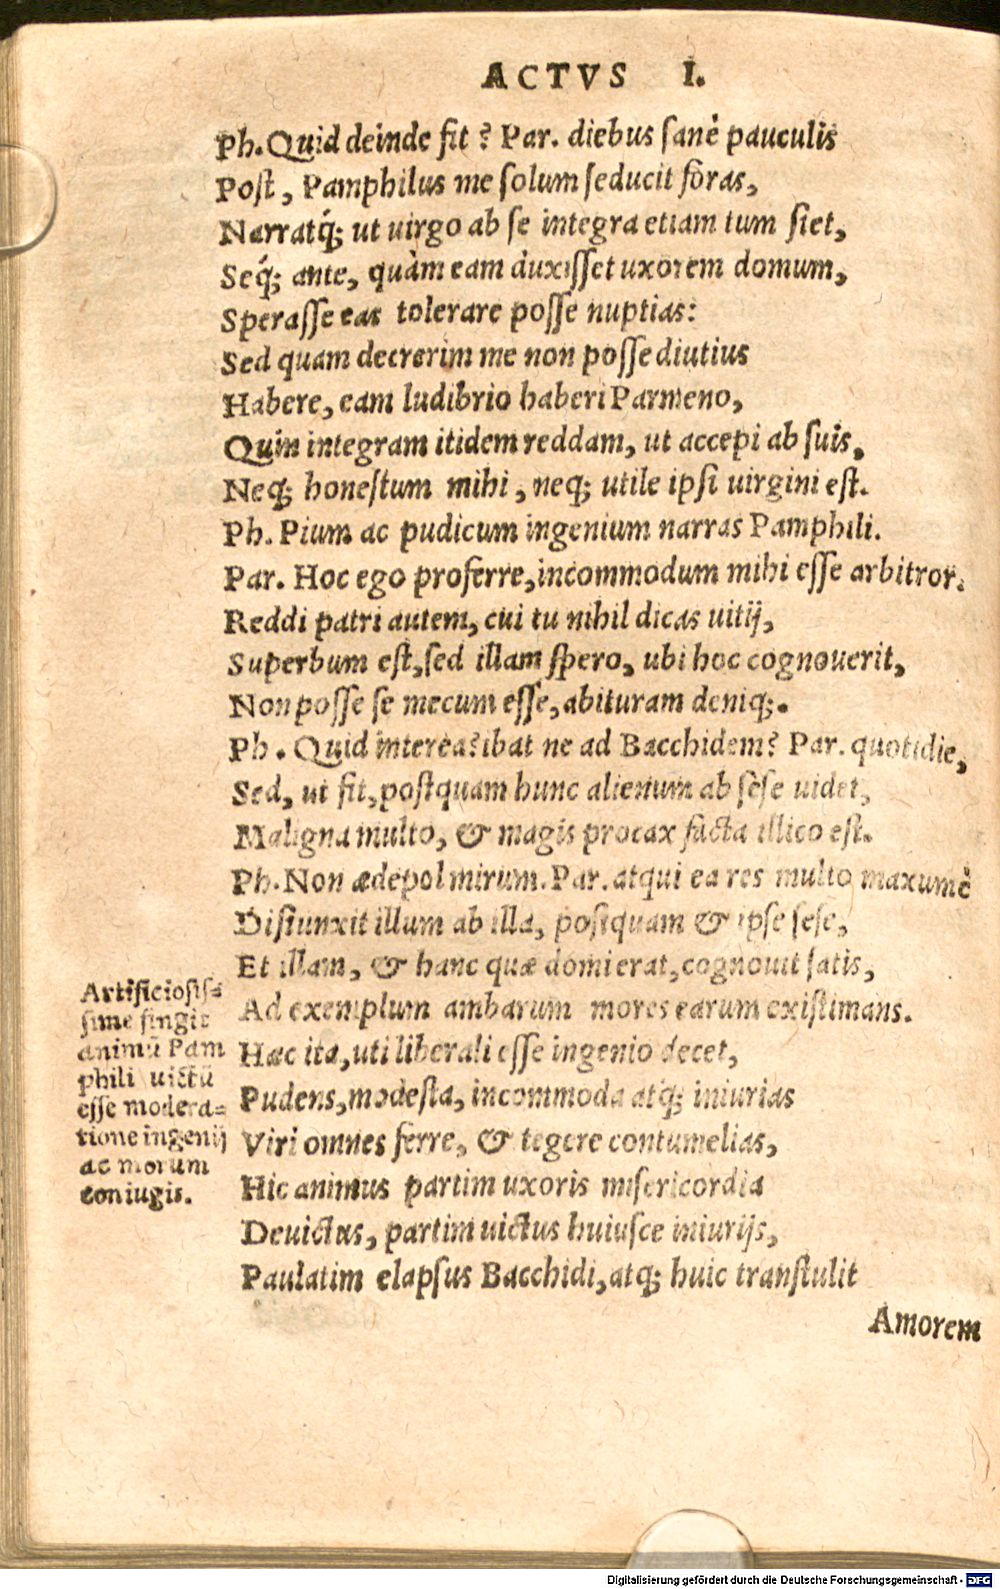 ACTVS I.
Ph. Quid deinde fit? Par. diebus sanè pauculis
Post, Pamphilus me solum seducit foras,
Narratq́; ut uirgo ab se integra etiam tum siet,
Seq́; ante, quàm eam duxisset uxorem domum,
Sperasse eas tolerare posse nuptias:
Sed quam decrerim me non posse diutius
Habere, eam ludibrio haberi Parmeno,
Quin integram itidem reddam, ut accepi ab suis,
Neq; honestum mihi, neq; utile ipsi uirgini est.
Ph. Pium ac pudicum ingenium narras Pamphili.
Par. Hoc ego proferre, incommodum mihi esse arbitror.
Reddi patri autem, cui tu nihil dicas uitij,
Superbum est, sed illam spero, ubi hoc cognouerit,
Non posse se mecum esse, abituram deniq;.
Ph. Quid interea? ibat ne ad Bacchidem? Par. quotidie,
Sed, ut fit, postquam hunc alienum ab sese uidet,
Maligna multo, & magis procax facta illico est.
Ph. Non ædepol mirum. Par. atqui ea res multo maxumè
Disiunxit illum ab illa, postquam & ipse sese,
Et illam, & hanc quæ domi erat, cognouit satis,
Ad exemplum ambarum mores earum existimans.
Hæc ita, uti liberali esse ingenio decet,
Pudens, modesta, incommoda atq; iniurias
Viri omnes ferre, & tegere contumelias,
Hic animus partim uxoris misericordia
Deuictus, partim uictus huiusce iniurijs,
Paulatim elapsus Bacchidi, atq; huic transtulit
Amorem
Artificiosis=
sime fingit
animū Pam
phili uictū
esse modera=
tione ingenij
ac morum
coniugis.
Digitalisierung gefördert durch die Deutsche Forschungsgemeinschaft - DFG